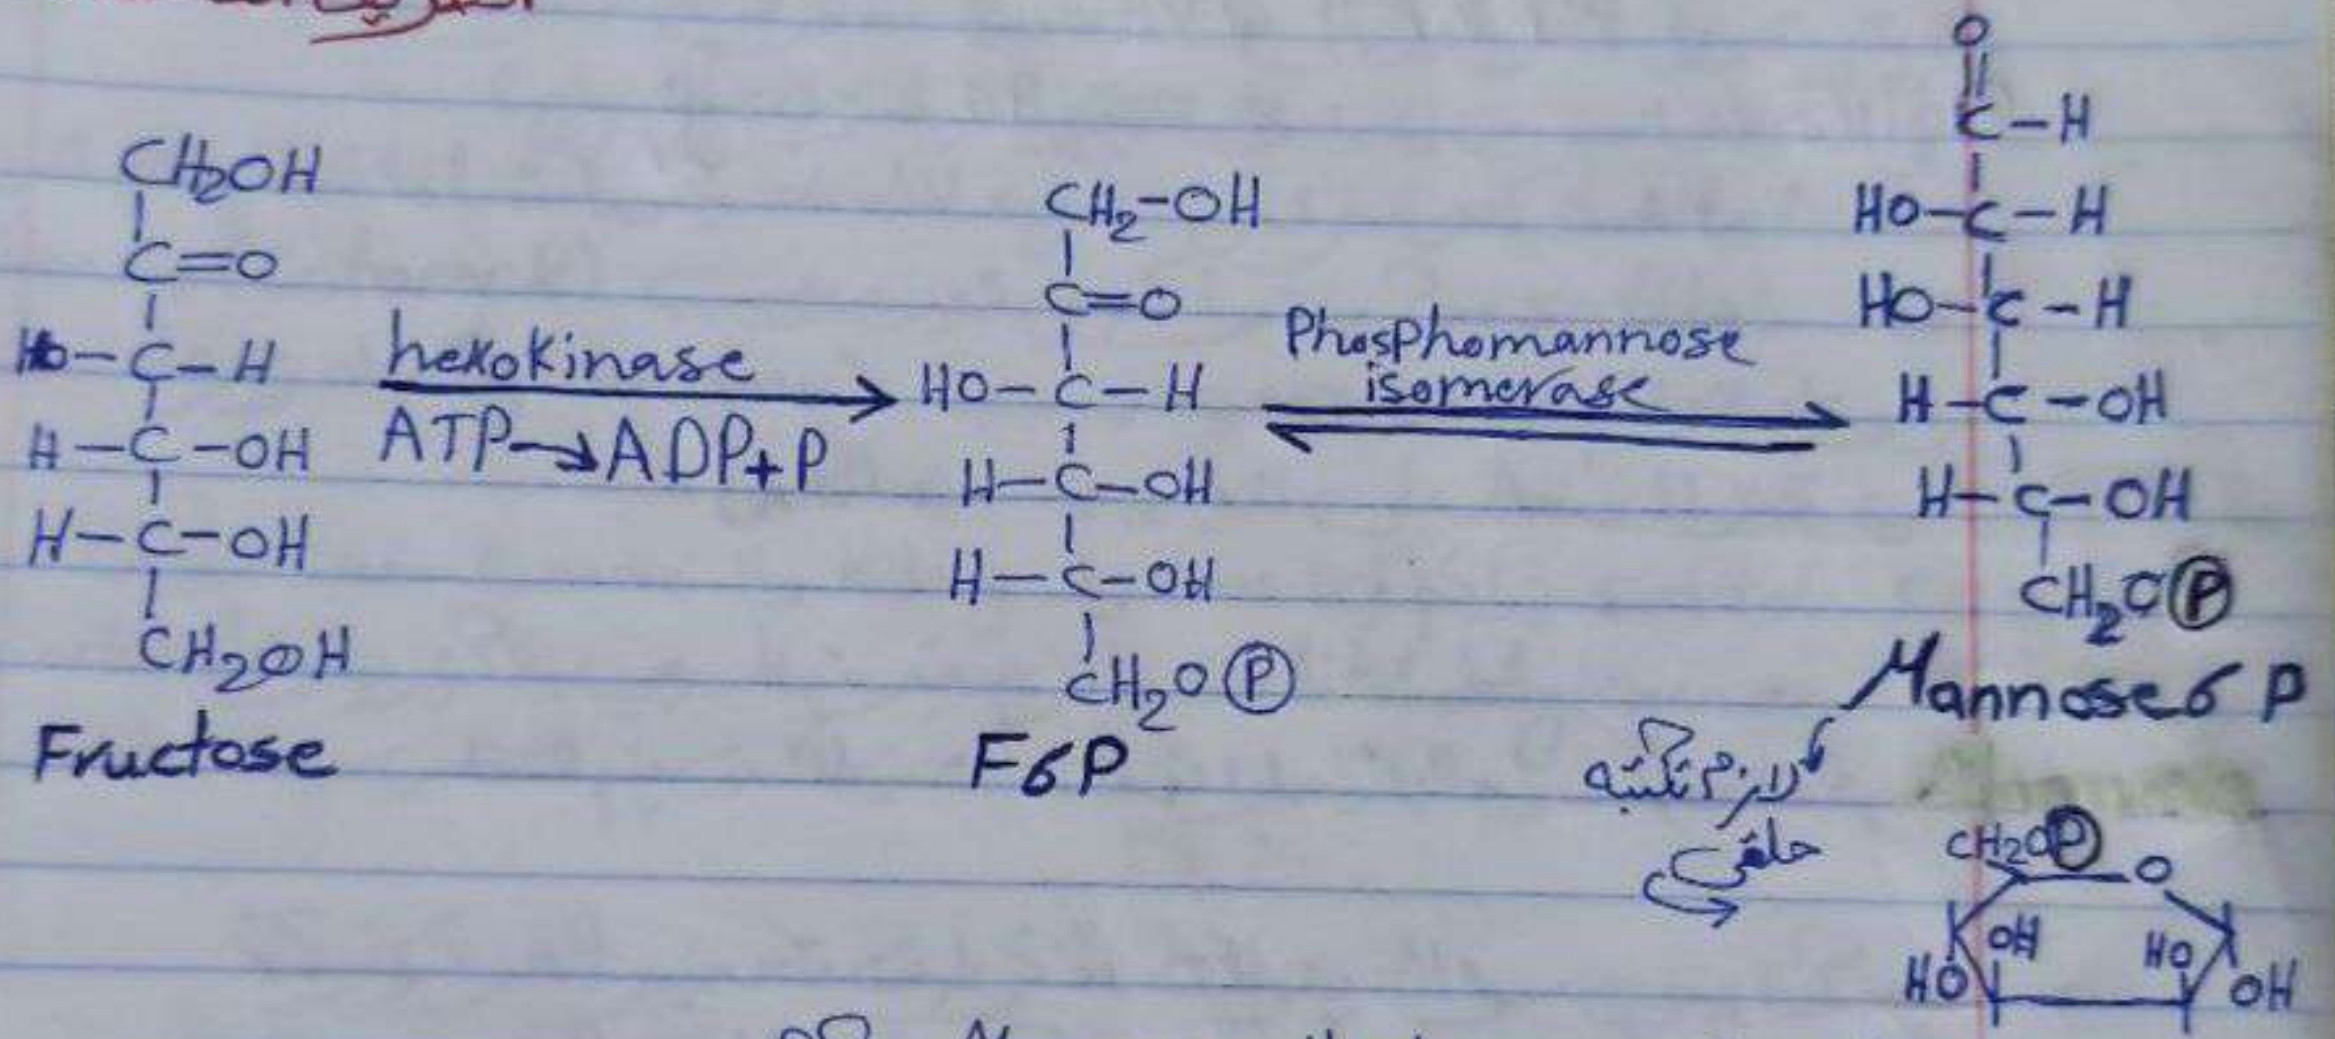 CH2OH
C=O
HO-C-H
H-C-OH
H-C-OH
CH2OH
Fructose
hexokinase
ATP→ADP+P
CH2-OH
C=O
HO-C-H
H-C-OH
H-C-OH
CH2O P
F6P
Phosphomannose
isomerase
O
C-H
HO-C-H
HO-C-H
H-C-OH
H-C-OH
CH2O P
Mannose 6 P
لازم تكتبه
حلقي
CH2O P O
OH HO
HO OH